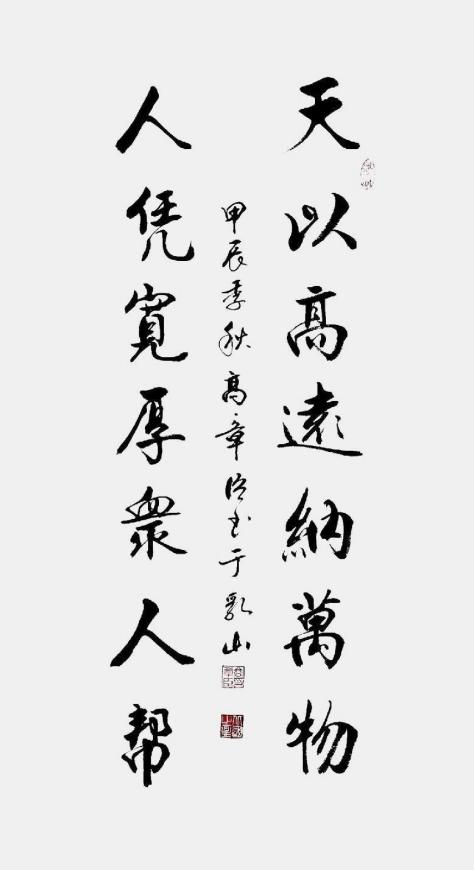 天以高遠納萬物
人凭寬厚衆人幫
甲辰季秋高章臣书于乳山